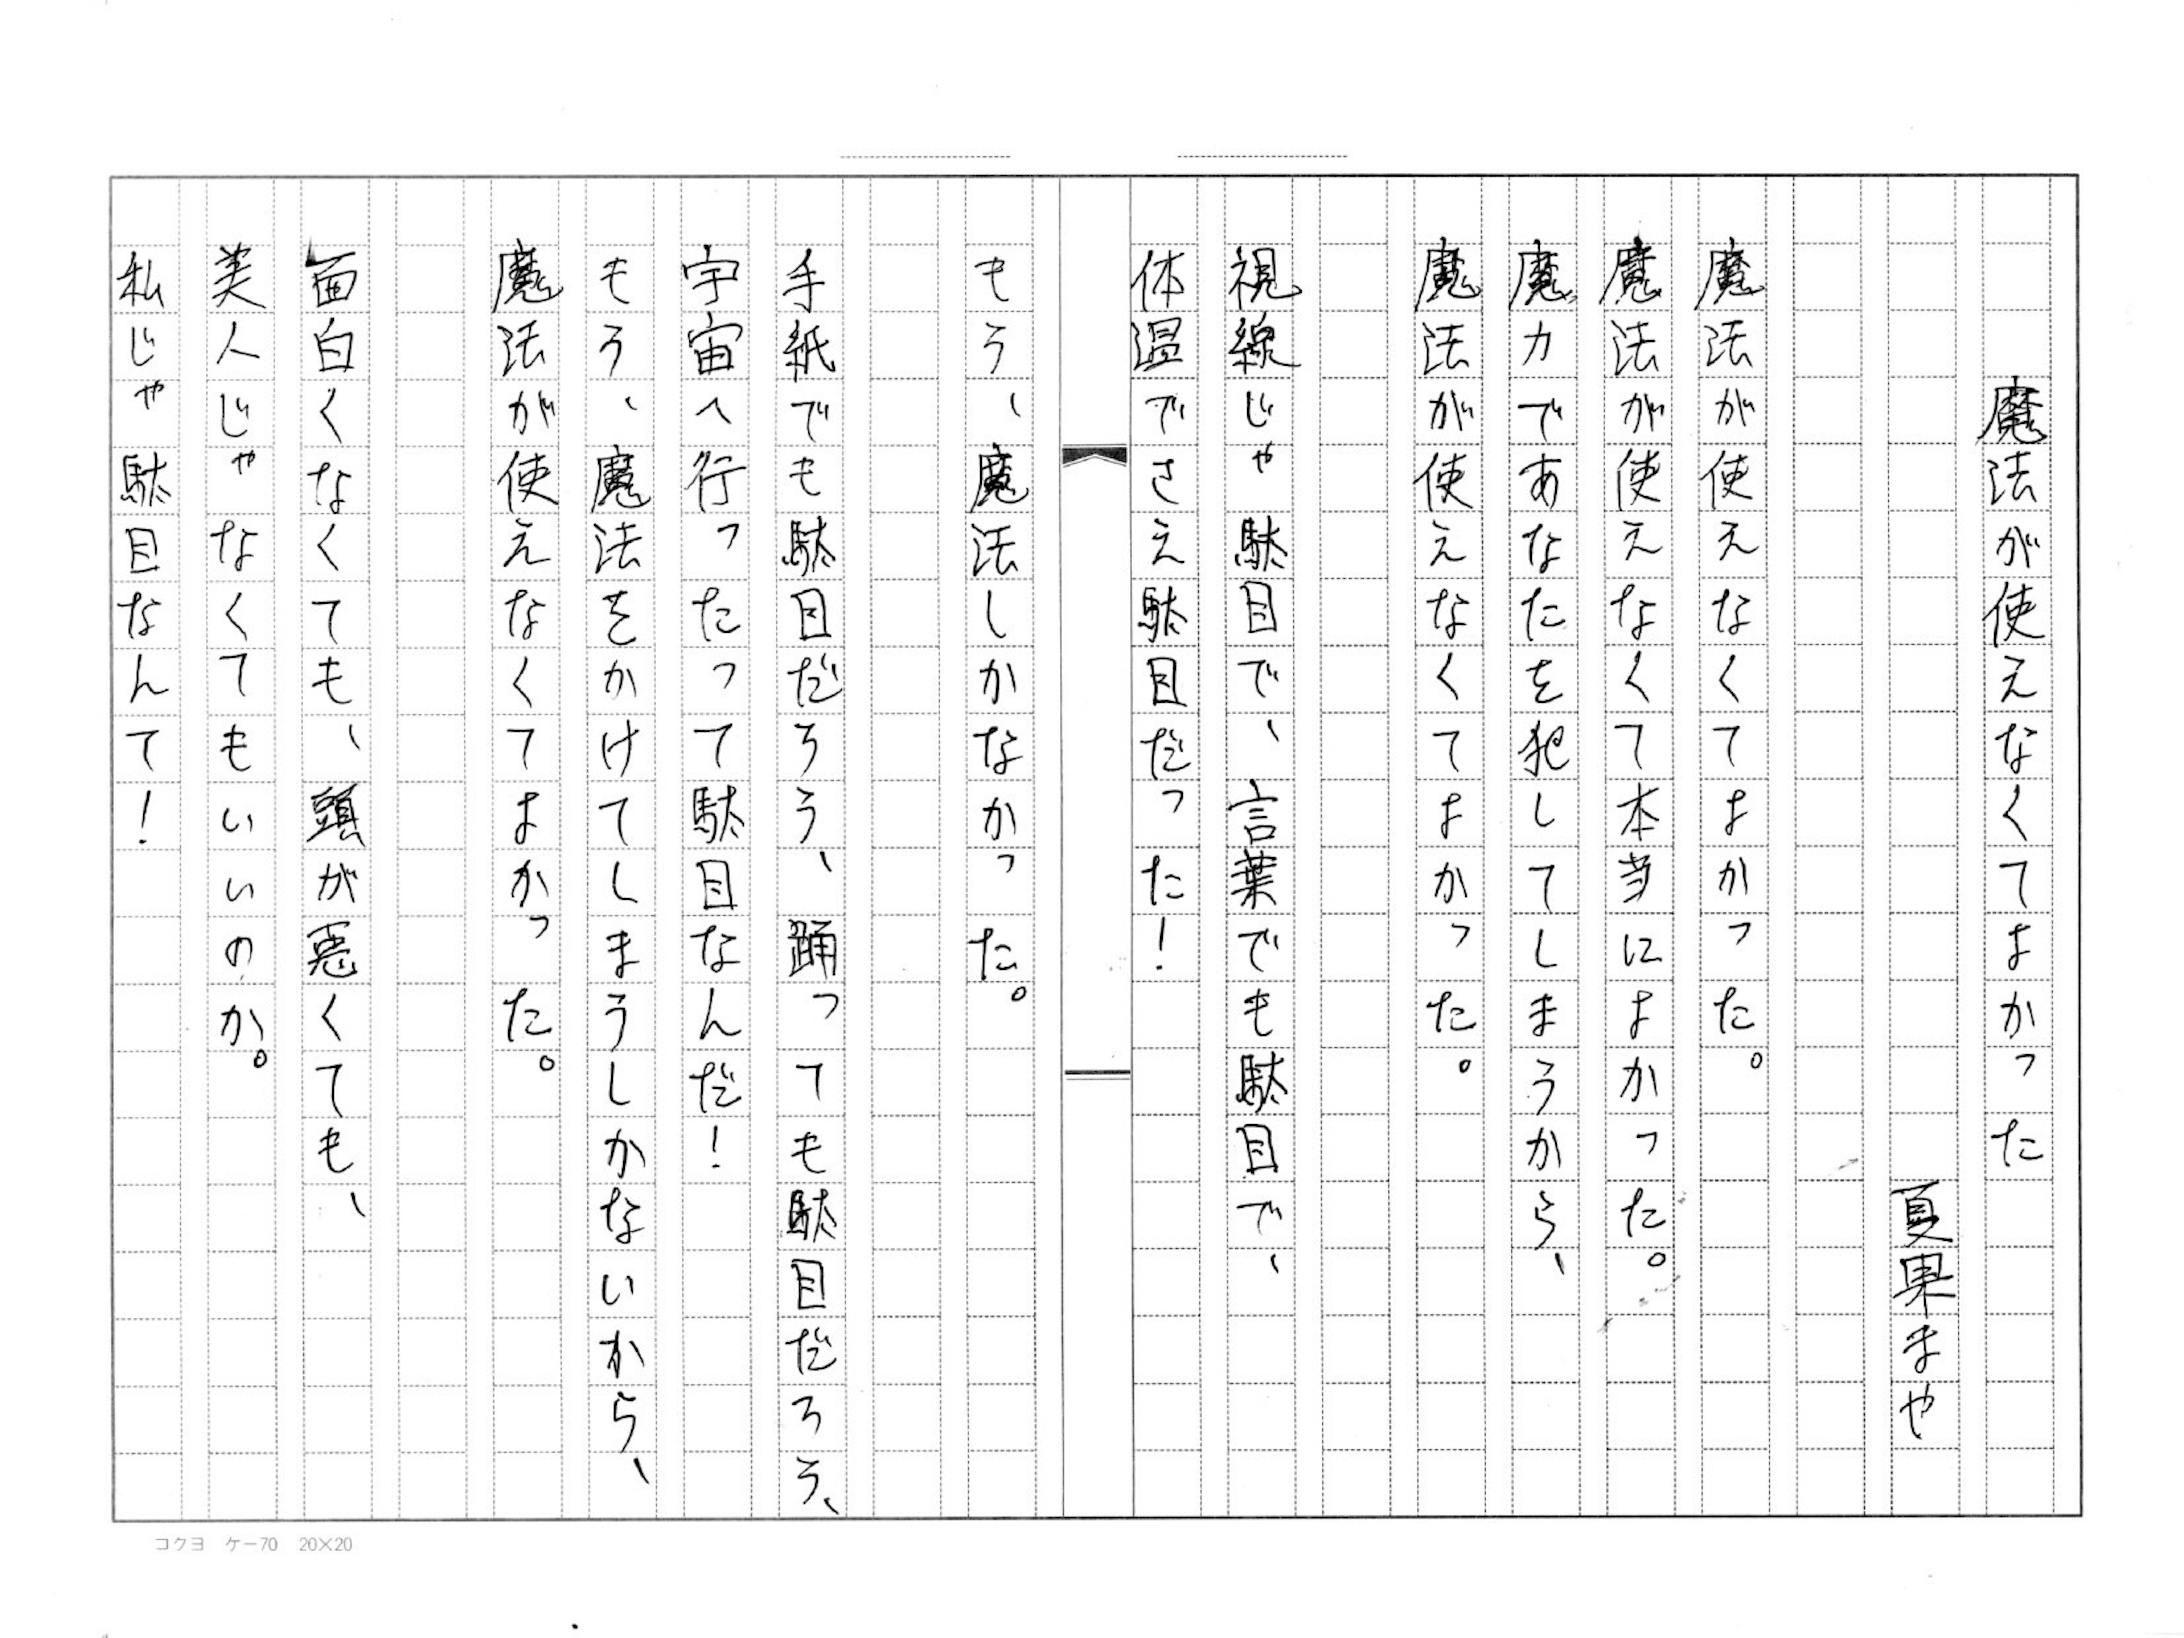 魔法が使えなくてよかった
夏果まや
魔法が使えなくてよかった。
魔法が使えなくて本当によかった。
魔力であなたを犯してしまうから、
魔法が使えなくてよかった。
視線じゃ駄目で、言葉でも駄目で、
体温でさえ駄目だった！
もう、魔法しかなかった。
手紙でも駄目だろう、踊っても駄目だろう、
宇宙へ行ったって駄目なんだ！
もう、魔法をかけてしまうしかないから、
魔法が使えなくてよかった。
面白くなくても、頭が悪くても、
美人じゃなくてもいいのか。
私じゃ駄目なんて！
コクヨ ケー70 20×20